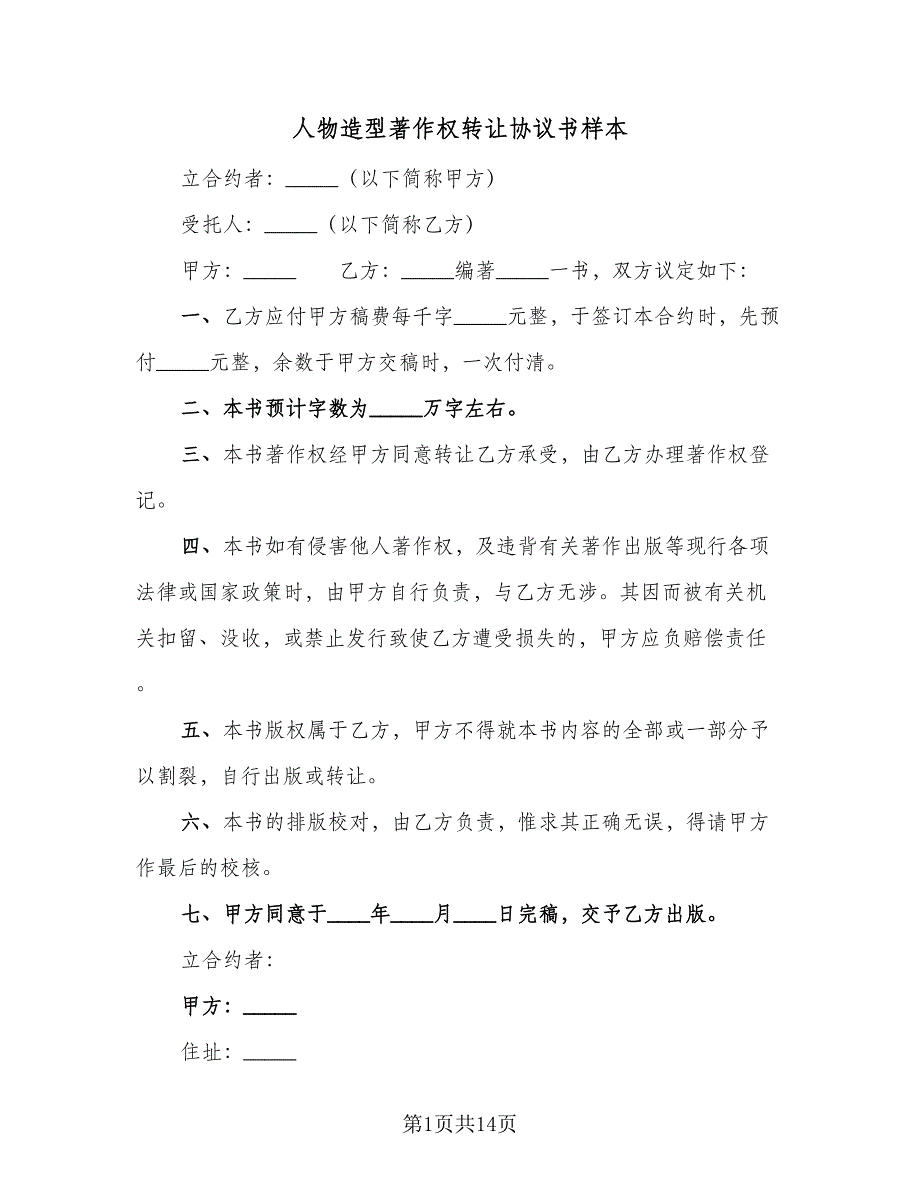 人物造型著作权转让协议书样本
立合约者：_____（以下简称甲方）
受托人：_____（以下简称乙方）
甲方：_____　　乙方：_____编著_____一书，双方议定如下：
一、乙方应付甲方稿费每千字_____元整，于签订本合约时，先预
付_____元整，余数于甲方交稿时，一次付清。
二、本书预计字数为_____万字左右。
三、本书著作权经甲方同意转让乙方承受，由乙方办理著作权登
记。
四、本书如有侵害他人著作权，及违背有关著作出版等现行各项
法律或国家政策时，由甲方自行负责，与乙方无涉。其因而被有关机
关扣留、没收，或禁止发行致使乙方遭受损失的，甲方应负赔偿责任
。
五、本书版权属于乙方，甲方不得就本书内容的全部或一部分予
以割裂，自行出版或转让。
六、本书的排版校对，由乙方负责，惟求其正确无误，得请甲方
作最后的校核。
七、甲方同意于____年____月____日完稿，交予乙方出版。
立合约者：
甲方：_____
住址：_____
第1页共14页